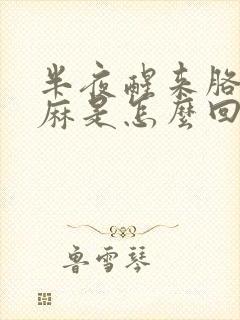 半夜醒来胳
麻是怎麼回
鲁雪琴